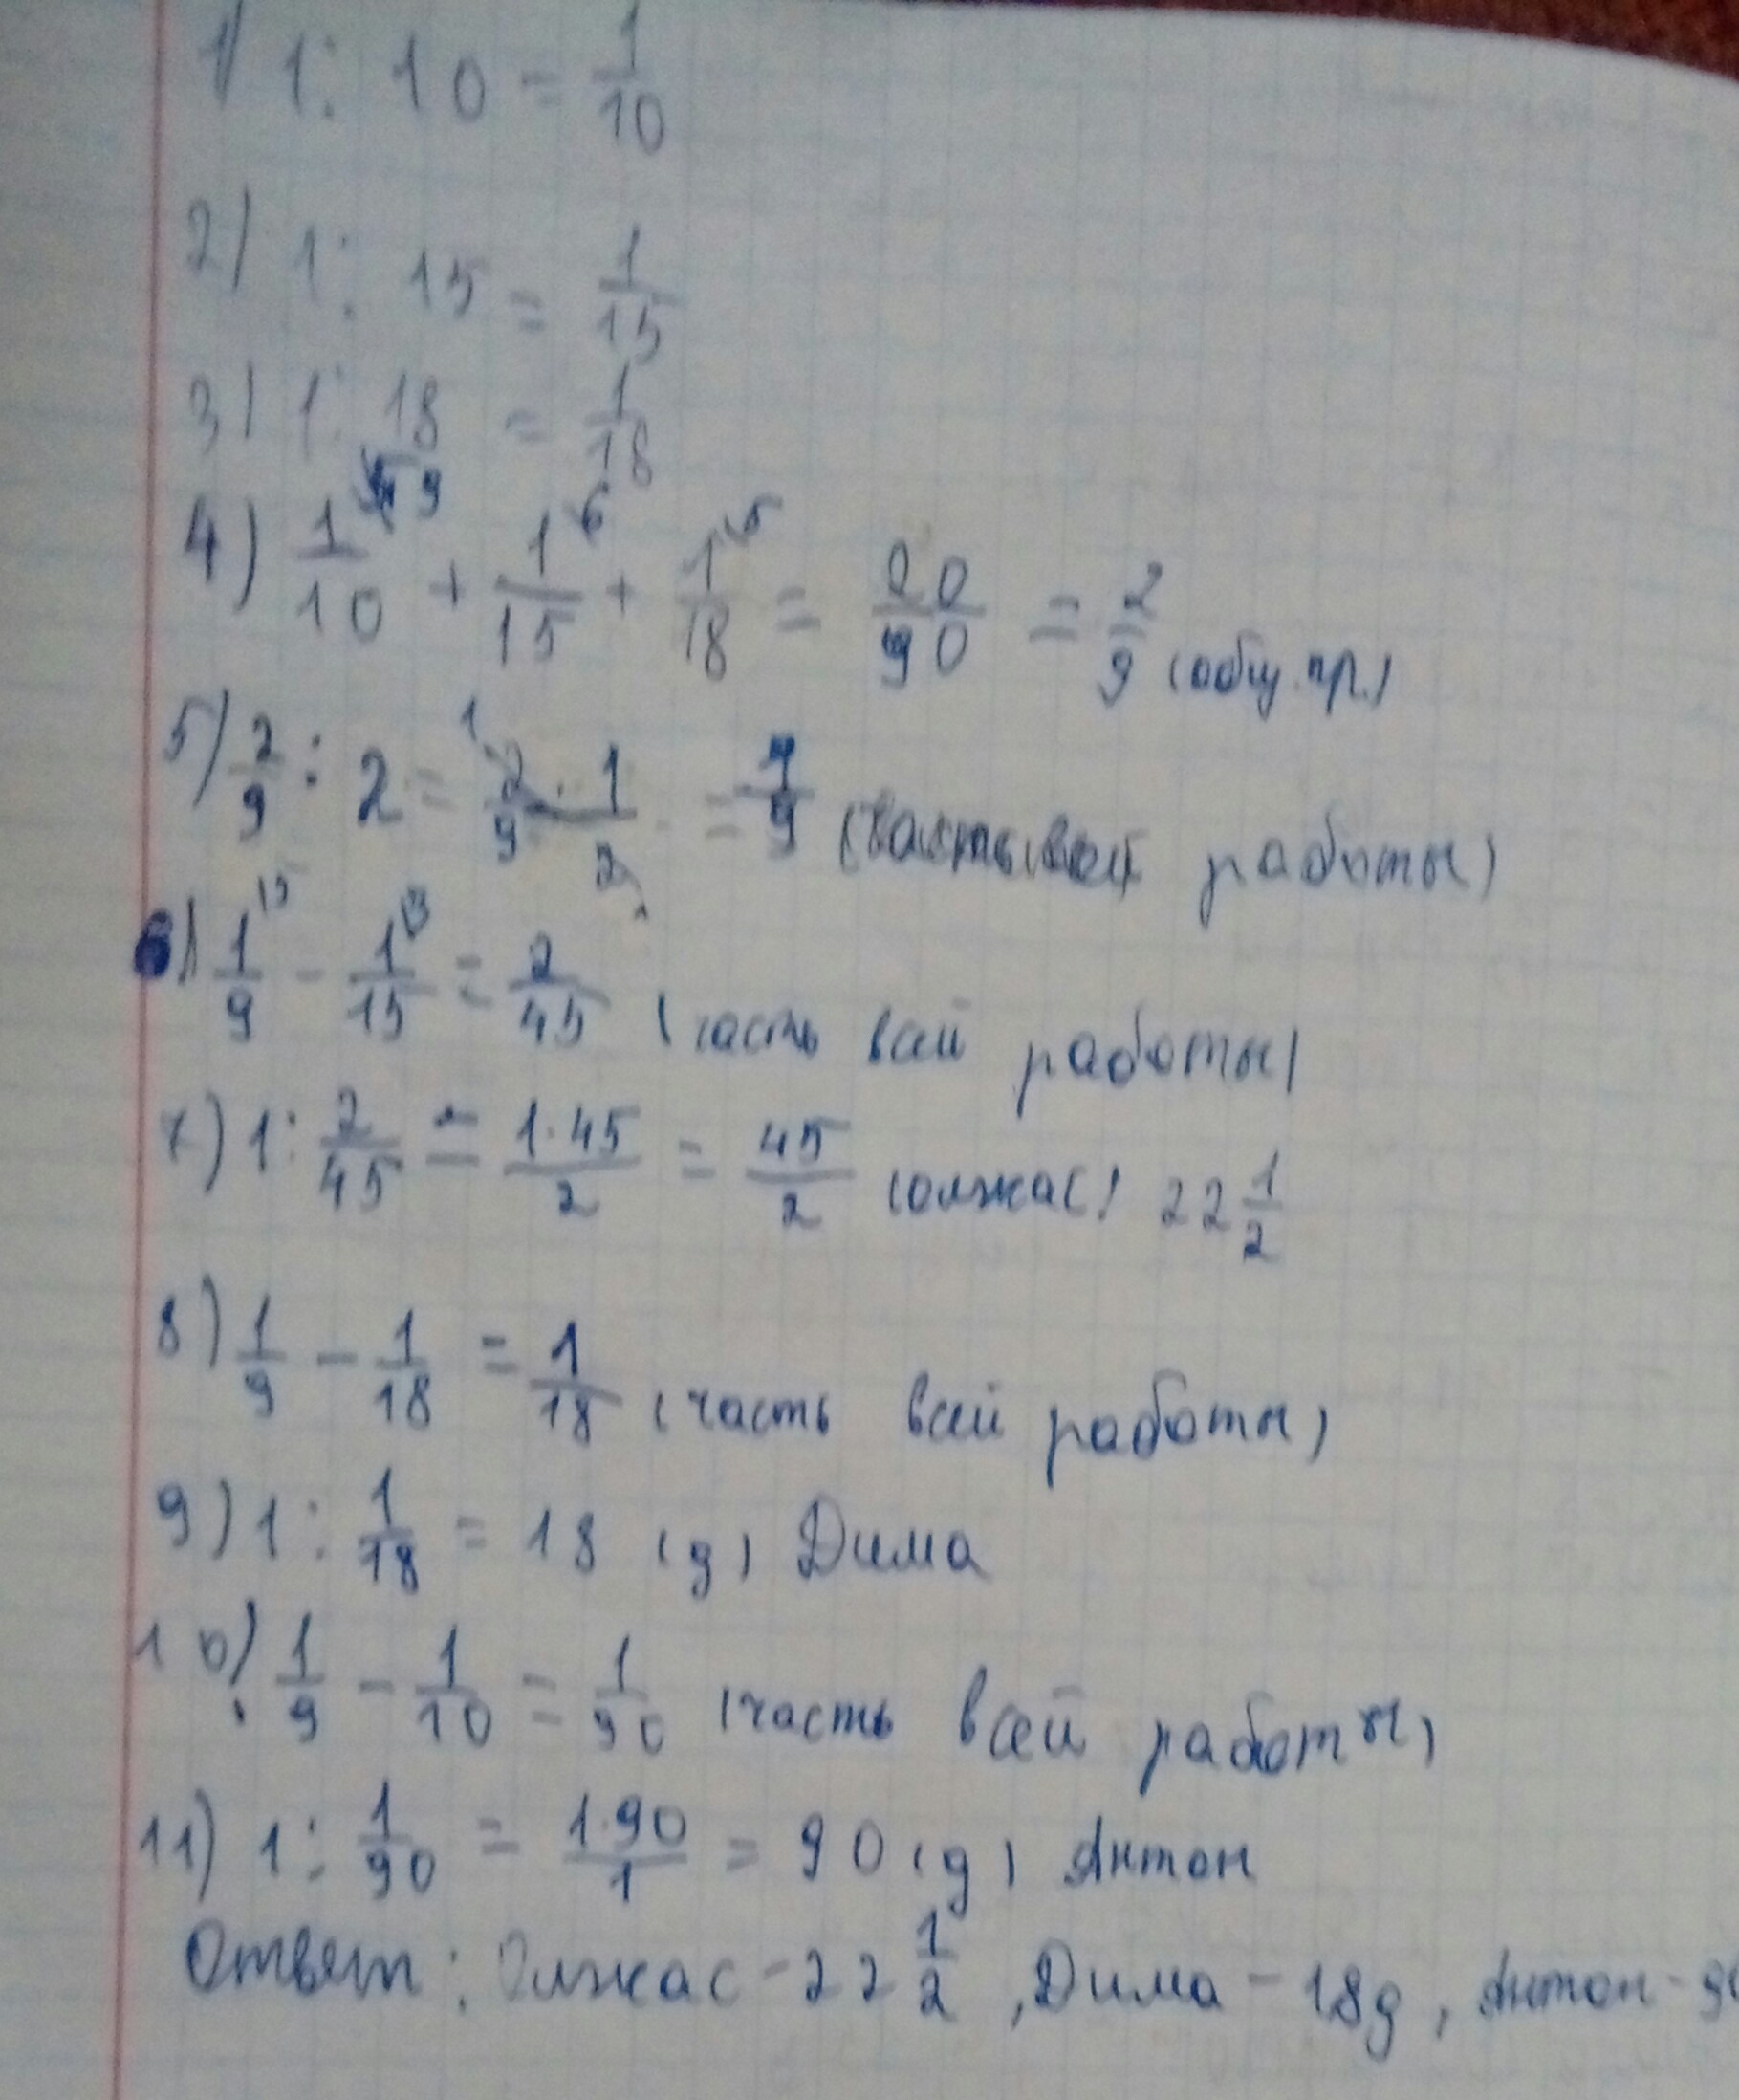 1) 1 : 10 = 1/10
2) 1 : 15 = 1/15
3) 1 : 18 = 1/18
4) 1/10 \9 + 1/15 \6 + 1/18 \5 = 20/90 = 2/9 (общ. пр.)
5) 2/9 : 2 = 2/9 · 1/2 = 1/9 (часть всей работы)
6) 1/9 \5 - 1/15 \3 = 2/45 (часть всей работы)
7) 1 : 2/45 = 1·45/2 = 45/2 (олжас) 22 1/2
8) 1/9 - 1/18 = 1/18 (часть всей работы)
9) 1 : 1/18 = 18 (д) Дима
10) 1/9 - 1/10 = 1/90 (часть всей работы)
11) 1 : 1/90 = 1·90/1 = 90 (д) Антон
Ответ: Олжас - 22 1/2, Дима - 18д, Антон - 90